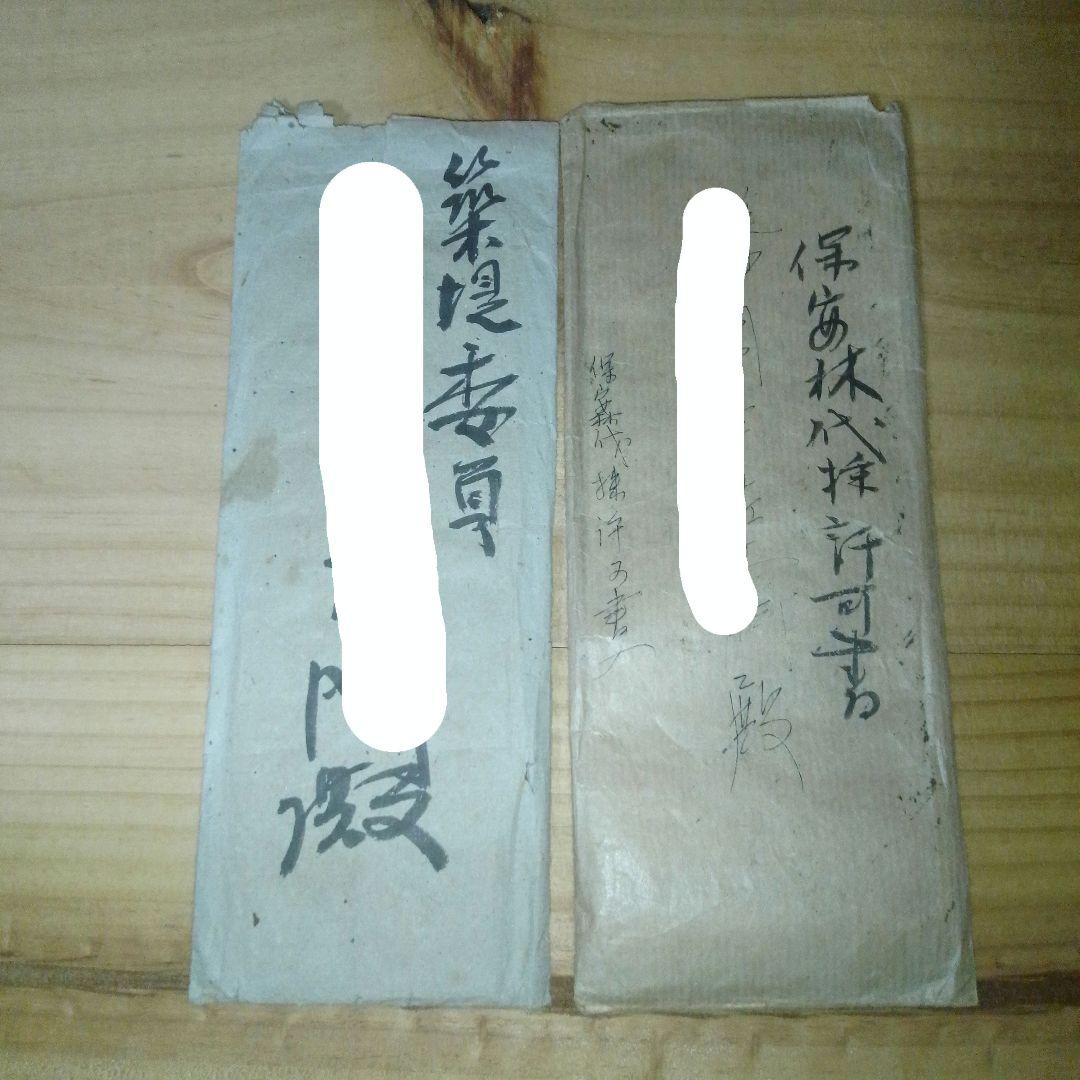 築堤委員
門殿
保安林伐採許可書
殿
保安林伐採許可書